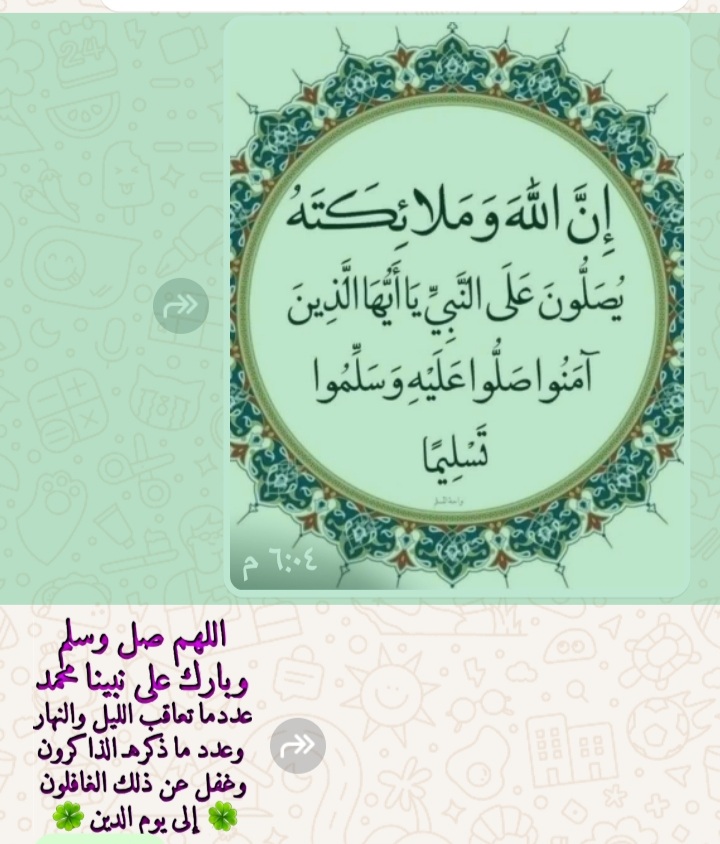 إِنَّ اللَّهَ وَمَلَائِكَتَهُ
يُصَلُّونَ عَلَى النَّبِيِّ يَا أَيُّهَا الَّذِينَ
آمَنُوا صَلُّوا عَلَيْهِ وَسَلِّمُوا
تَسْلِيمًا
٦:٠٤ م
اللهم صل وسلم
وبارك على نبينا محمد
عددما تعاقب الليل والنهار
وعدد ما ذكره الذاكرون
وغفل عن ذلك الغافلون
🍀 إلى يوم الدين 🍀